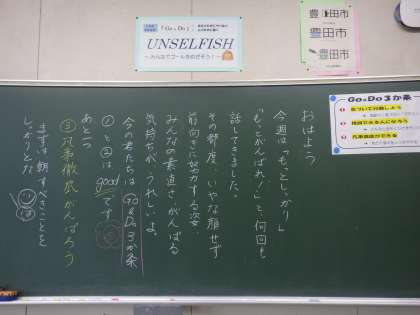 「Go & Do」
UNSELFISH
〜みんなでゴールをめざそう！〜
豊田市
豊田市
豊田市
Go&Do３か条
おはよう
今週は「もっとしっかり」
「もっとがんばれ！」と、何回も
話してきました。
その都度、いやな顔せず
前向きに努力する姿、
みんなの素直さ、がんばる
気持ちが、うれしいよ。
今の君たちは Go&Do3か条
①と②は good です
あと一つ
③凡事徹底がんばろう
まずは朝すべきことを
しっかりとね